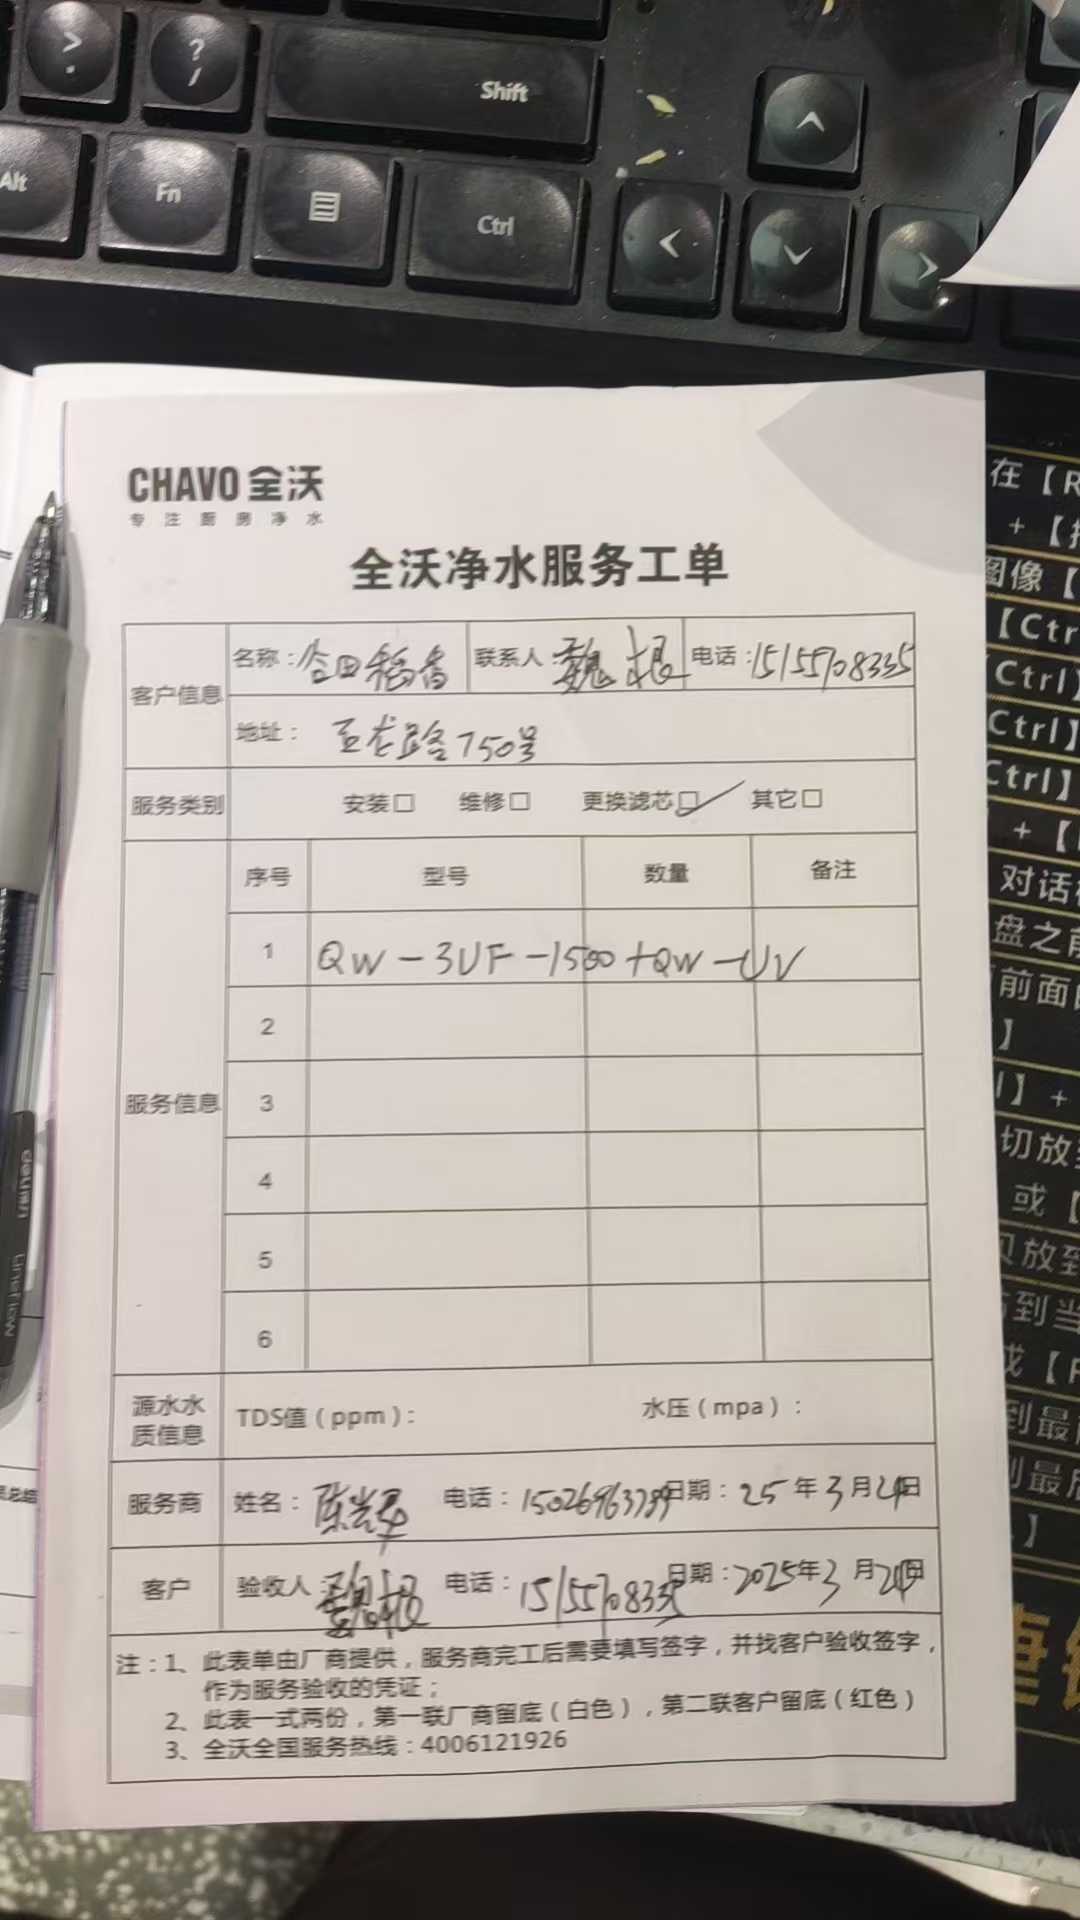 > .
? /
Shift
^
Alt
Fn
Ctrl
<
>
CHAVO 全沃
专注厨房净水
全沃净水服务工单
客户信息
名称：仓田稻香 联系人：魏根 电话：15155708335
地址： 路750号
服务类别 安装□ 维修□ 更换滤芯□✓ 其它□
服务信息
序号 型号 数量 备注
1 QW-3UF-1500+QW-UV
2
3
4
5
6
源水水质信息 TDS值（ppm）： 水压（mpa）：
服务商 姓名：陈 电话：15026963789 日期：25年3月24日
客户 验收人：魏根 电话：15155708335 日期：2025年3月24日
注：1、此表单由厂商提供，服务商完工后需要填写签字，并找客户验收签字，
作为服务验收的凭证；
2、此表一式两份，第一联厂商留底（白色），第二联客户留底（红色）
3、全沃全国服务热线：4006121926
deli
Lineflow
在【R
+【
图像【
【Ctr
Ctrl】
Ctrl】
Ctrl】
+【
对话
盘之前
前面
】
】+
切放
或【
放到
到当
或【F
到最
到最后
】